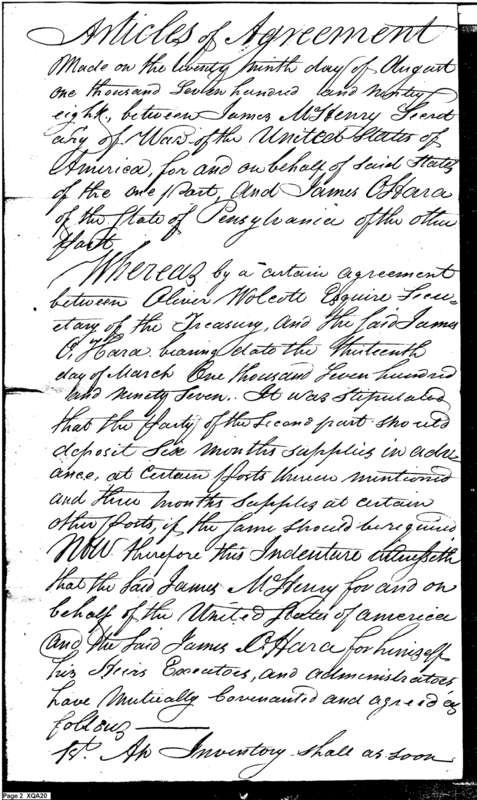 Articles of Agreement
Made on the twenty ninth day of August
one thousand Seven hundred and ninety
eight, between James McHenry Secret
ary of War of the United States of
America, for and on behalf of said States
of the one part, And James O'Hara
of the State of Pensylvania of the other
part
Whereas by a certain agreement
between Oliver Wolcott Esquire Secre-
etary of the Treasury, and the said James
O'Hara bearing date the thirteenth
day of March One thousand Seven hundred
and ninety Seven. It was stipulated
that the party of the second part should
deposit Six months supplies in adv-
ance, at certain posts therein mentioned
and three months supplies at certain
other posts, if the same should be required
Now therefore this Indenture witnesseth
that the said James McHenry for and on
behalf of the United States of america
and the said James O'Hara for himself
his Heirs Executors, and administrators
have mutually Covenanted and agreed as
follows
1st. An Inventory shall as soon
Page 2 XQA20